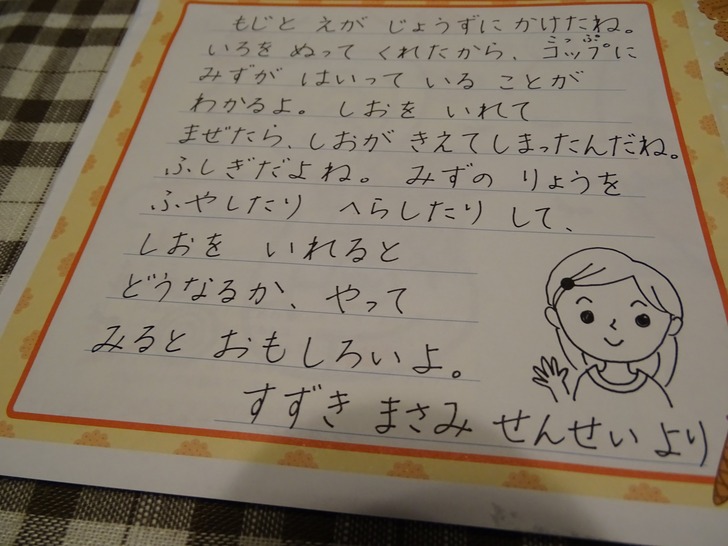 もじと えが じょうずに かけたね。
いろを ぬって くれたから、コップに
こっぷ
みずが はいって いる ことが
わかるよ。しおを いれて
まぜたら、しおが きえてしまったんだね。
ふしぎだよね。 みずの りょうを
ふやしたり へらしたり して、
しおを いれると
どうなるか、やって
みると おもしろいよ。
すずき まさみ せんせい より